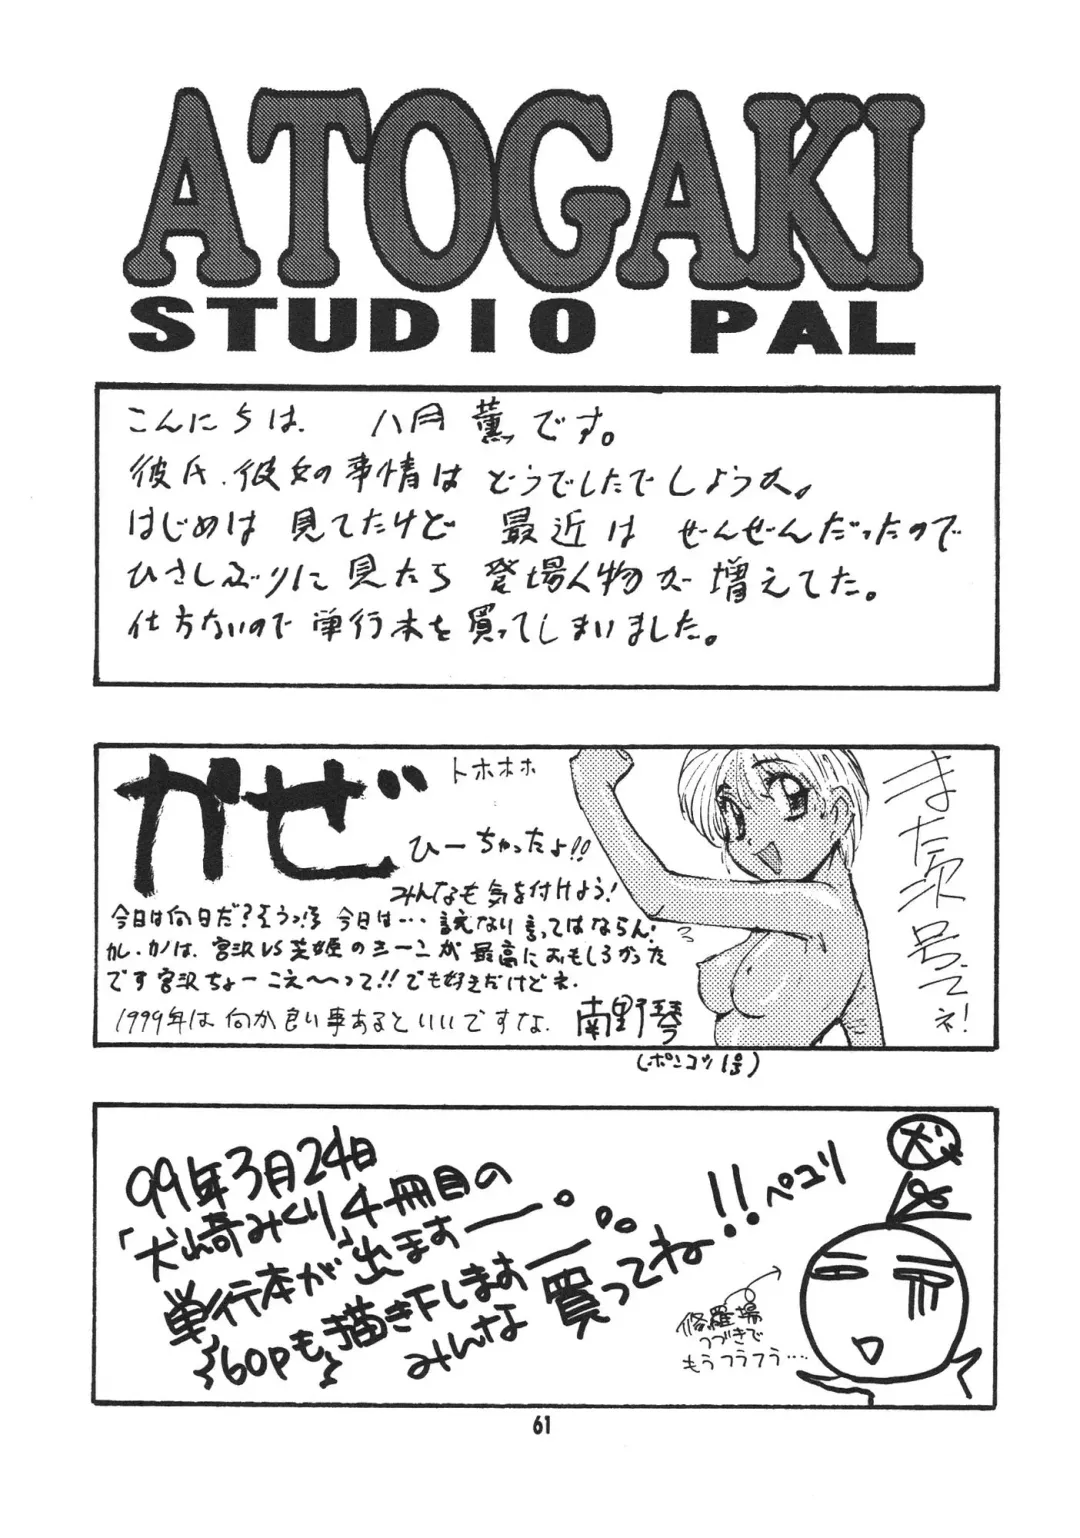 ATOGAKI
STUDIO PAL
こんにちは、 八月 薫です。
彼氏、彼女の事情は どうでしたでしょうか。
はじめは 見てたけど 最近は ぜんぜんだったので
ひさしぶりに 見たら 登場人物が 増えてた。
仕方ないので 単行本を 買ってしまいました。
かぜ
トホホホ
ひーちゃったよ!!
みんなも 気を付けよう!
今日は何日だ?そうっ!今日は… 言えない 言ってはならん!
カレ・カノは、宮沢VS芝姫のシーンが 最高に おもしろかった
です 宮沢ちょー こえ〜〜って!! でも好きだけどネ.
1999年は 何か 良い事あるといいですな.
南野琴
(ポンコツ1号)
また次号でネ!
99年3月24日
「犬崎みくり」4冊目の
単行本が出ますー。
60Pも描き下しますー
みんな 買ってね!!ペコリ
犬
修羅場
つづきで
もうフラフラ…
61